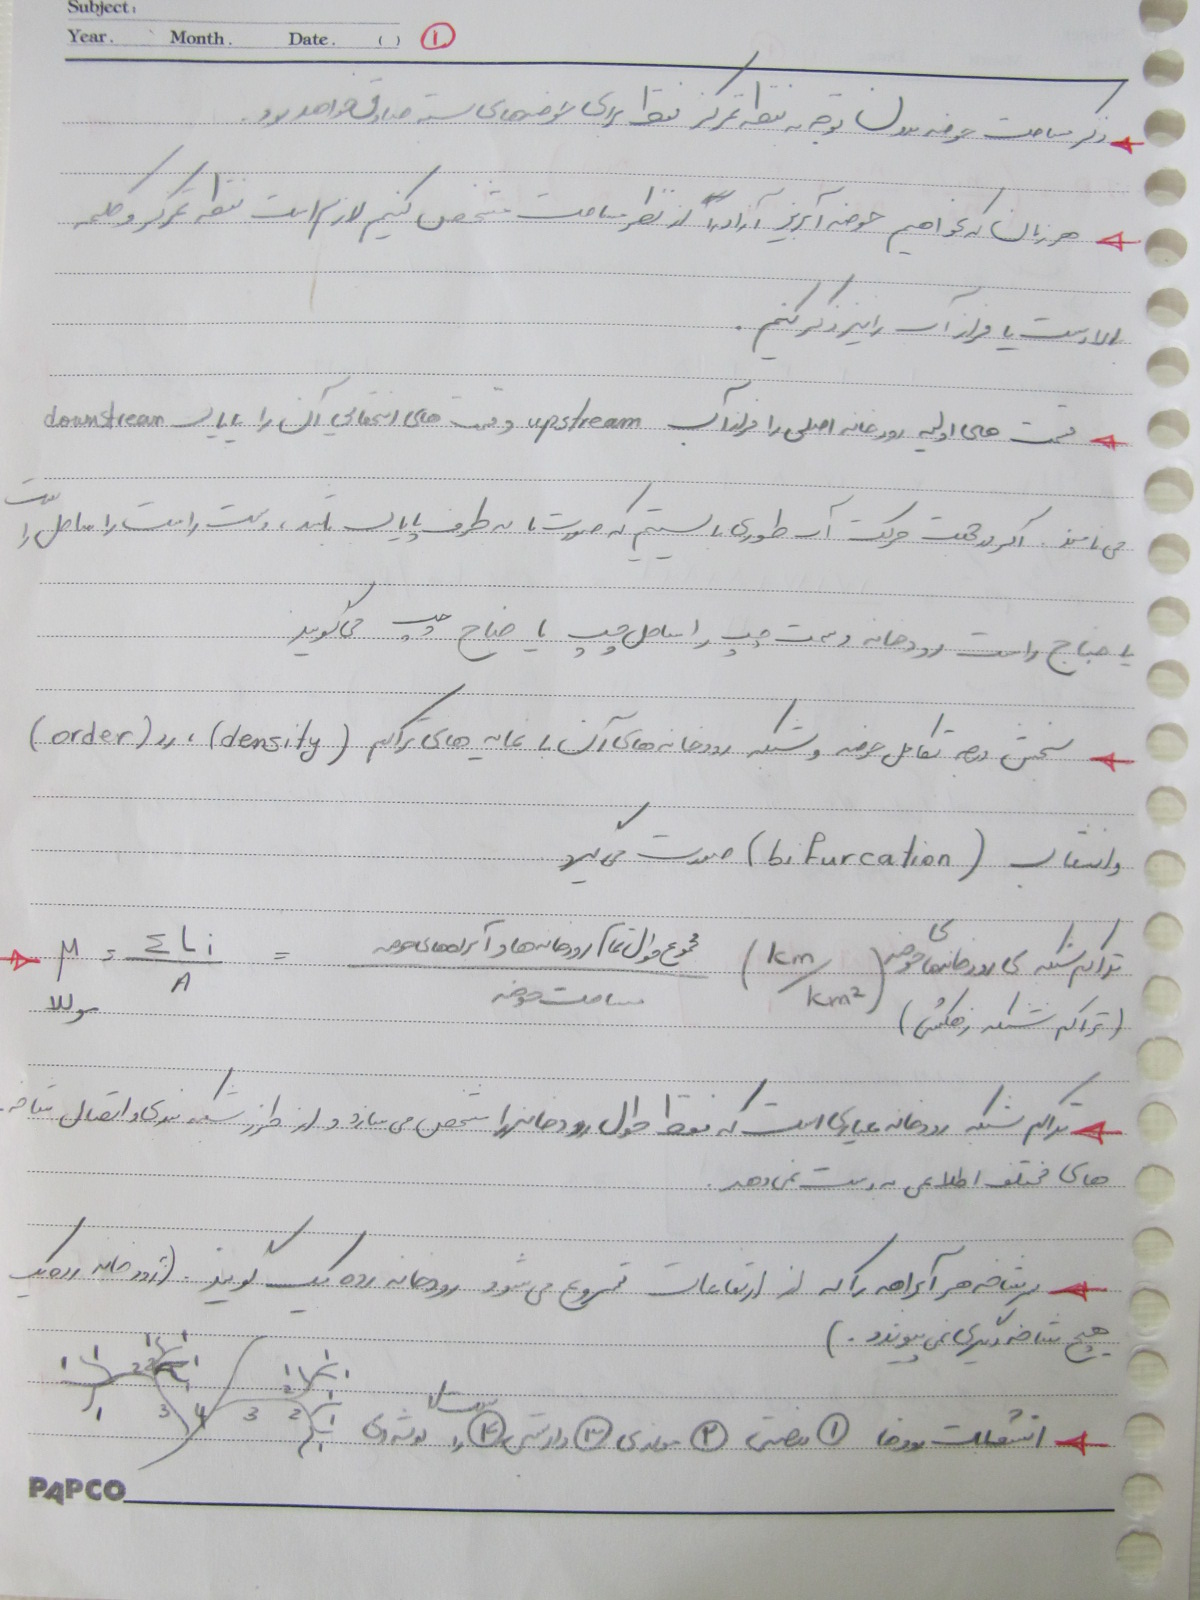 Subject:
Year. Month. Date. ( ) ①
ذکر مساحت حوضه بدون توجه به نقطه تمرکز فقط برای حوضه‌های بسته صادق خواهد بود.
هر زمان که بخواهیم حوضه آبریز آزاد را از نظر مساحت مشخص کنیم لازم است نقطه تمرکز و کلمه
بالادست یا فراز آب را نیز ذکر کنیم.
قسمت های اولیه رودخانه اصلی را فراز آب upstream و قسمت های انتهایی آن را پایاب downstream
می نامند. اگر در جهت حرکت آب طوری بایستیم که صورت ما به طرف پایاب باشد، دست راست را ساحل راست
یا جناح راست رودخانه و سمت چپ را ساحل چپ یا جناح چپ می گویند
سنجش درجه تکامل حوضه و شبکه رودخانه های آن با نمایه های تراکم (density)، رده (order)
و انشعاب (bifurcation) صورت می گیرد
تراکم شبکه ی رودخانه‌های حوضه (km/km²) مجموع طول تمام رودخانه‌ها و آبراهه‌های حوضه / مساحت حوضه = ΣLi / A = μ
(تراکم شبکه زهکشی)
تراکم شبکه رودخانه معیاری است که فقط طول رودخانه را مشخص می سازد و از طرز شبکه بندی و اتصال شاخه
های مختلف اطلاعی به دست نمی دهد.
سرشاخه هر آبراهه را که از ارتفاعات شروع می شود رودخانه رده یک گویند. (به رودخانه رده یک
هیچ شاخه دیگری نمی پیوندد.)
1 1 1 2 3 4 3 2 1 1
انشعابات رودها ① ② موازی ③ داربستی ④
PAPCO